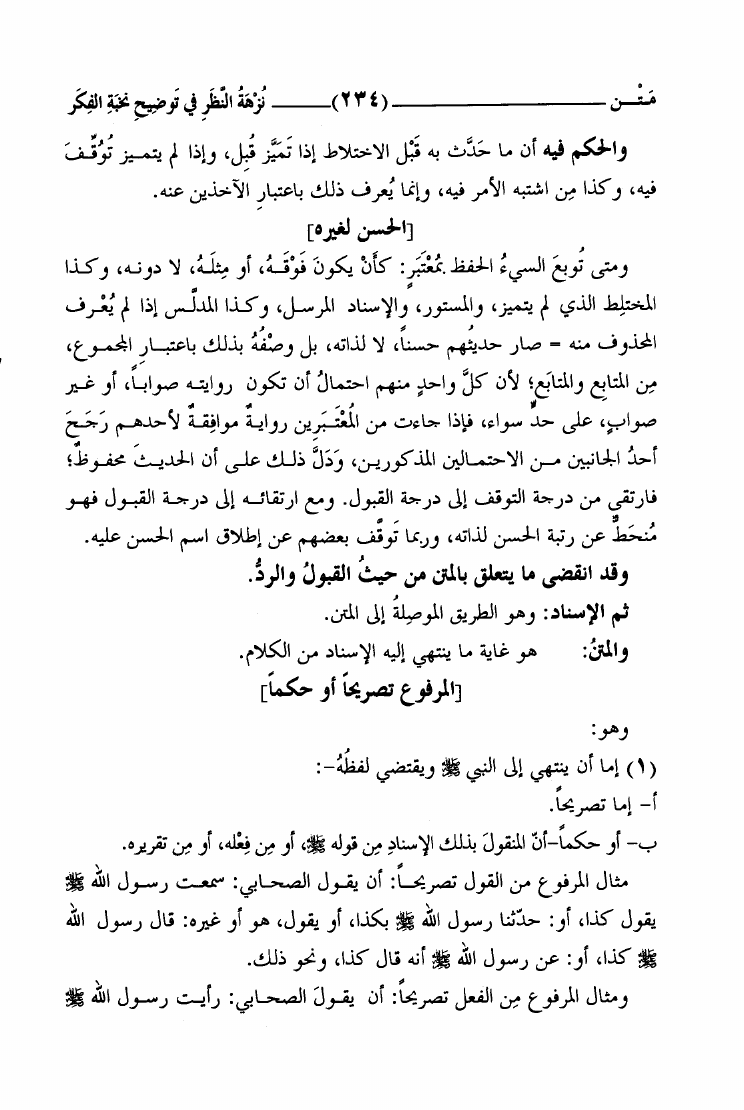 مَتْـــن ــــــــــــــــــــ (٢٣٤) ــــــــ نُزْهَةُ النَّظَرِ في تَوضِيحِ نُخبَةِ الفِكَر
والحكم فيه أن ما حَدَّث به قَبْل الاختلاط إذا تَمَيَّز قُبِل، وإذا لم يتميـز تُوُقِّـفَ
فيه، وكذا مِن اشتبه الأمر فيه، وإنما يُعرف ذلك باعتبارِ الآخذين عنه.
[الحسن لغيره]
ومتى تُوبعَ السيءُ الحفظ بمُعْتَبَرٍ: كأَنْ يكونَ فَوْقَهُ، أو مِثلَهُ، لا دونـه، وكـذا
المختلِط الذي لم يتميز، والمستور، والإسناد المرسل، وكـذا المدلَّـس إذا لم يُعْـرف
المحذوف منه = صار حديثُهم حسناً، لا لذاته، بل وصْفُهُ بذلك باعتبـارِ المجمـوع،
مِن المتابِع والمتابَع؛ لأن كلَّ واحدٍ منهم احتمالُ أن تكون روايتـه صوابـاً، أو غـير
صوابٍ، على حدٍّ سواء، فإذا جاءت من المُعْتَبَرِين روايـةٌ موافِقـةٌ لأحدهـم رَجَـحَ
أحدُ الجانبين مـن الاحتمـالين المذكوريـن، وَدَلَّ ذلـك علـى أن الحديـثَ محفـوظٌ؛
فارتقى من درجة التوقف إلى درجة القبول. ومع ارتقائـه إلى درجـة القبـول فهـو
مُنحَطٌّ عن رتبة الحسن لذاته، وربما تَوقَّف بعضهم عن إطلاق اسم الحسن عليه.
وقد انقضى ما يتعلق بالمتن من حيثُ القبولُ والردُّ.
ثم الإسناد: وهو الطريق الموصِلةُ إلى المتن.
والمتنُ: هو غاية ما ينتهي إليه الإسناد من الكلام.
[المرفوع تصريحاً أو حكماً]
وهو:
(١) إما أن ينتهي إلى النبي ﷺ ويقتضي لفظُهُ-:
أ- إما تصريحاً.
ب- أو حكماً-أنّ المنقولَ بذلك الإسنادِ مِن قوله ﷺ، أو مِن فِعْله، أو مِن تقريره.
مثال المرفوع من القول تصريحـاً: أن يقـول الصحـابي: سمعـت رسـول الله ﷺ
يقول كذا، أو: حدّثنا رسول الله ﷺ بكذا، أو يقول، هو أو غيره: قال رسول الله
ﷺ كذا، أو: عن رسول الله ﷺ أنه قال كذا، ونحو ذلك.
ومثال المرفوع مِن الفعل تصريحاً: أن يقـولَ الصحـابي: رأيـت رسـول الله ﷺ